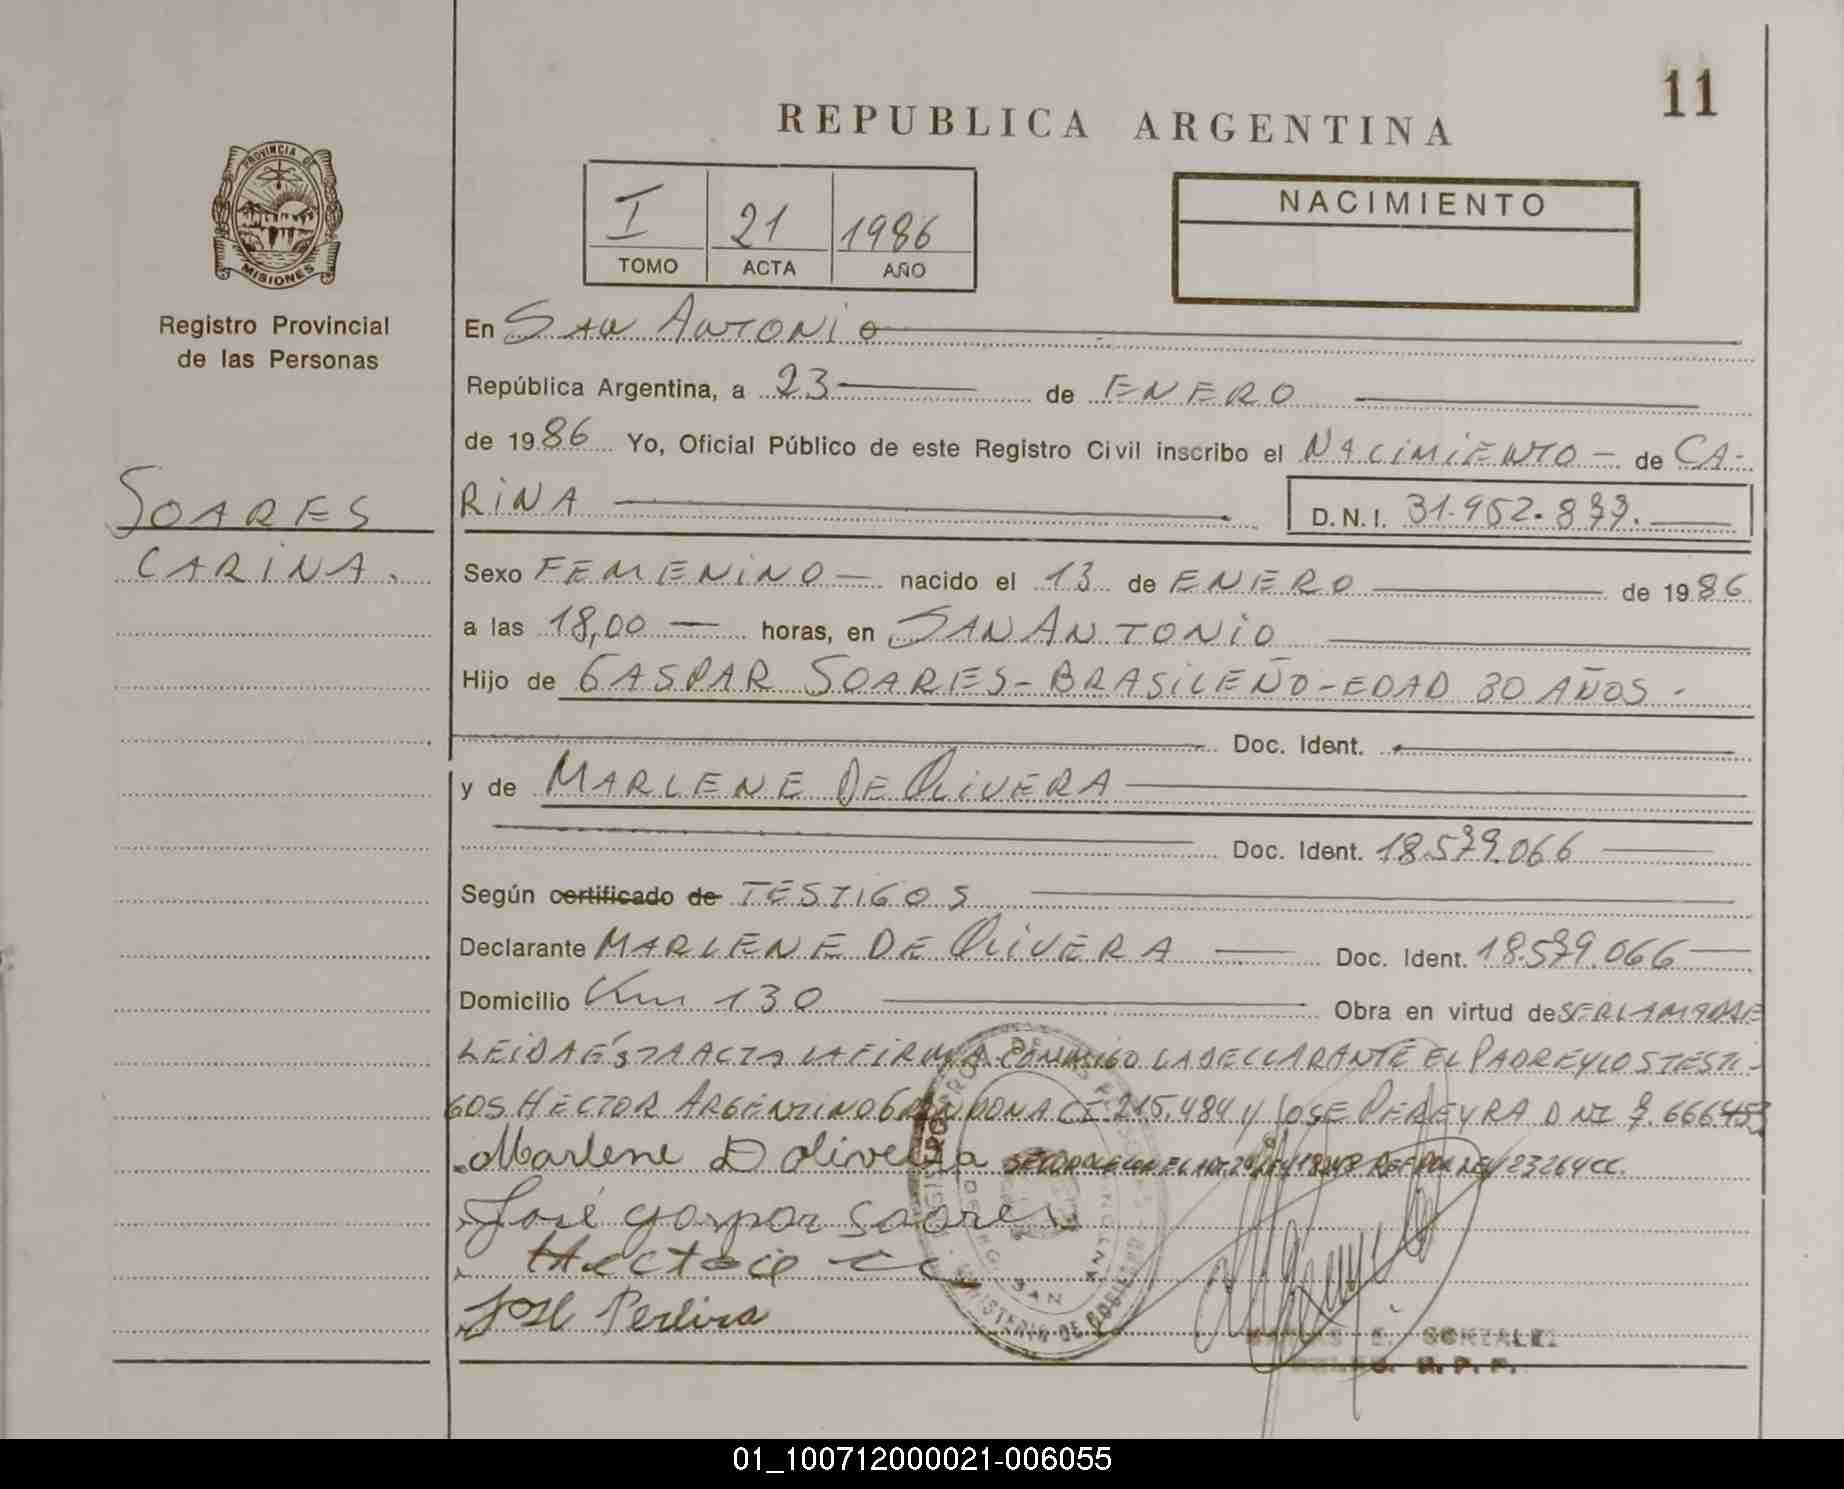 11
REPUBLICA ARGENTINA
PROVINCIA DE
MISIONES
Registro Provincial
de las Personas
I 21 1986
TOMO ACTA AÑO
NACIMIENTO
En SAN ANTONIO
República Argentina, a 23 de ENERO
de 1986 Yo, Oficial Público de este Registro Civil inscribo el NACIMIENTO - de CA-
RINA D.N.I. 31.952.877.
SOARES
CARINA.
Sexo FEMENINO - nacido el 13 de ENERO de 1986
a las 18,00 horas, en SAN ANTONIO
Hijo de GASPAR SOARES - BRASILEÑO - EDAD 30 AÑOS -
Doc. Ident.
y de MARLENE DE OLIVERA
Doc. Ident. 18.579.066
Según certificado de TESTIGOS
Declarante MARLENE DE OLIVERA Doc. Ident. 18.579.066
Domicilio Km 130 Obra en virtud de SER LA MADRE
LEIDA ÉSTA ACTA LA FIRMA CONMIGO LA DECLARANTE EL PADRE Y LOS TESTI-
GOS HECTOR ARGENTINO CI 215.484 y JOSE PEREYRA DNI 7.666453
Marlene D oliveira LEY 23264 CC.
José gaspar soares
Hector
José Pereira
MINISTERIO DE GOBIERNO
SAN ANTONIO
E. GONZALEZ
R. P. P.
01_100712000021-006055